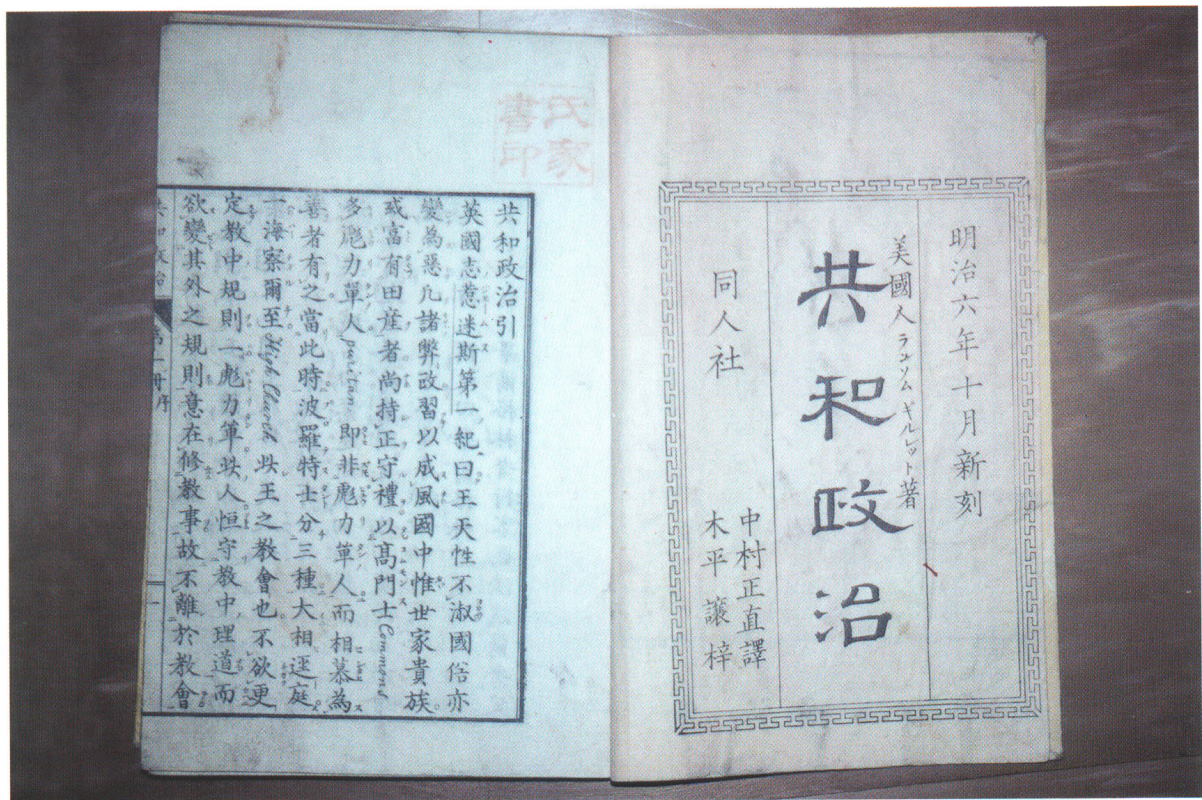 明治六年十月新刻
美國人ランソム ギルレット著
共和政治
同人社
中村正直譯
木平讓梓
氏家
書印
共和政治引
英國志惹迷斯第一紀曰王天性不淑國俗亦
變為惡凡諸弊政習以成風國中惟世家貴族
或富有田産者尚持正守禮以高門士Commons
多彪力單人puritan即非彪力單人而相慕為
善者有之當此時波羅特士分三種大相逕庭
一海察爾至High Church此王之教會也不欲更
定教中規則一彪力單此人恒守教中理道而
欲變其外之規則意在修教事故不離於教會
共和政治
第一册序
一